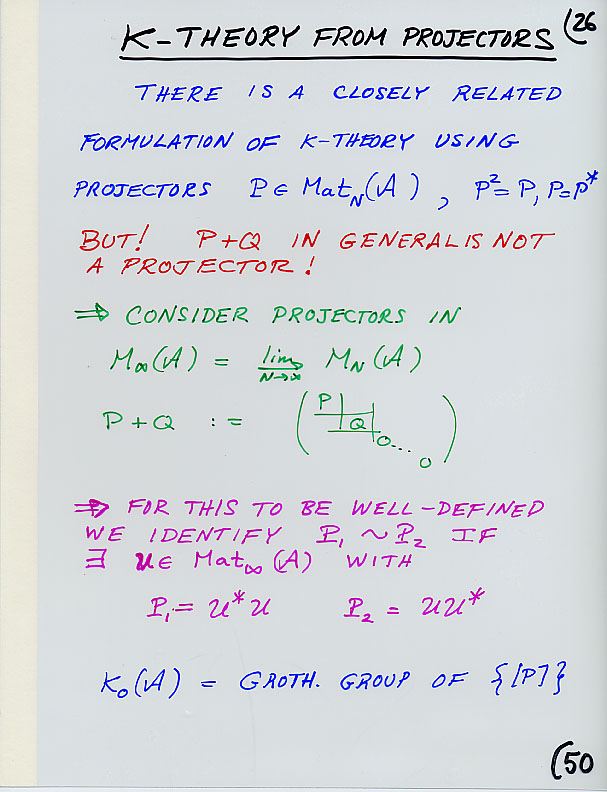 K-THEORY FROM PROJECTORS (26
THERE IS A CLOSELY RELATED
FORMULATION OF K-THEORY USING
PROJECTORS P ∈ Mat_N(A), P²=P, P=P*
BUT! P+Q IN GENERAL IS NOT
A PROJECTOR!
⇒ CONSIDER PROJECTORS IN
M∞(A) = lim M_N(A)
N→∞
P+Q := ( P
Q
0...
0 )
⇒ FOR THIS TO BE WELL-DEFINED
WE IDENTIFY P₁ ~ P₂ IF
∃ U ∈ Mat∞(A) WITH
P₁ = U*U P₂ = UU*
K₀(A) = GROTH. GROUP OF {[P]}
(50